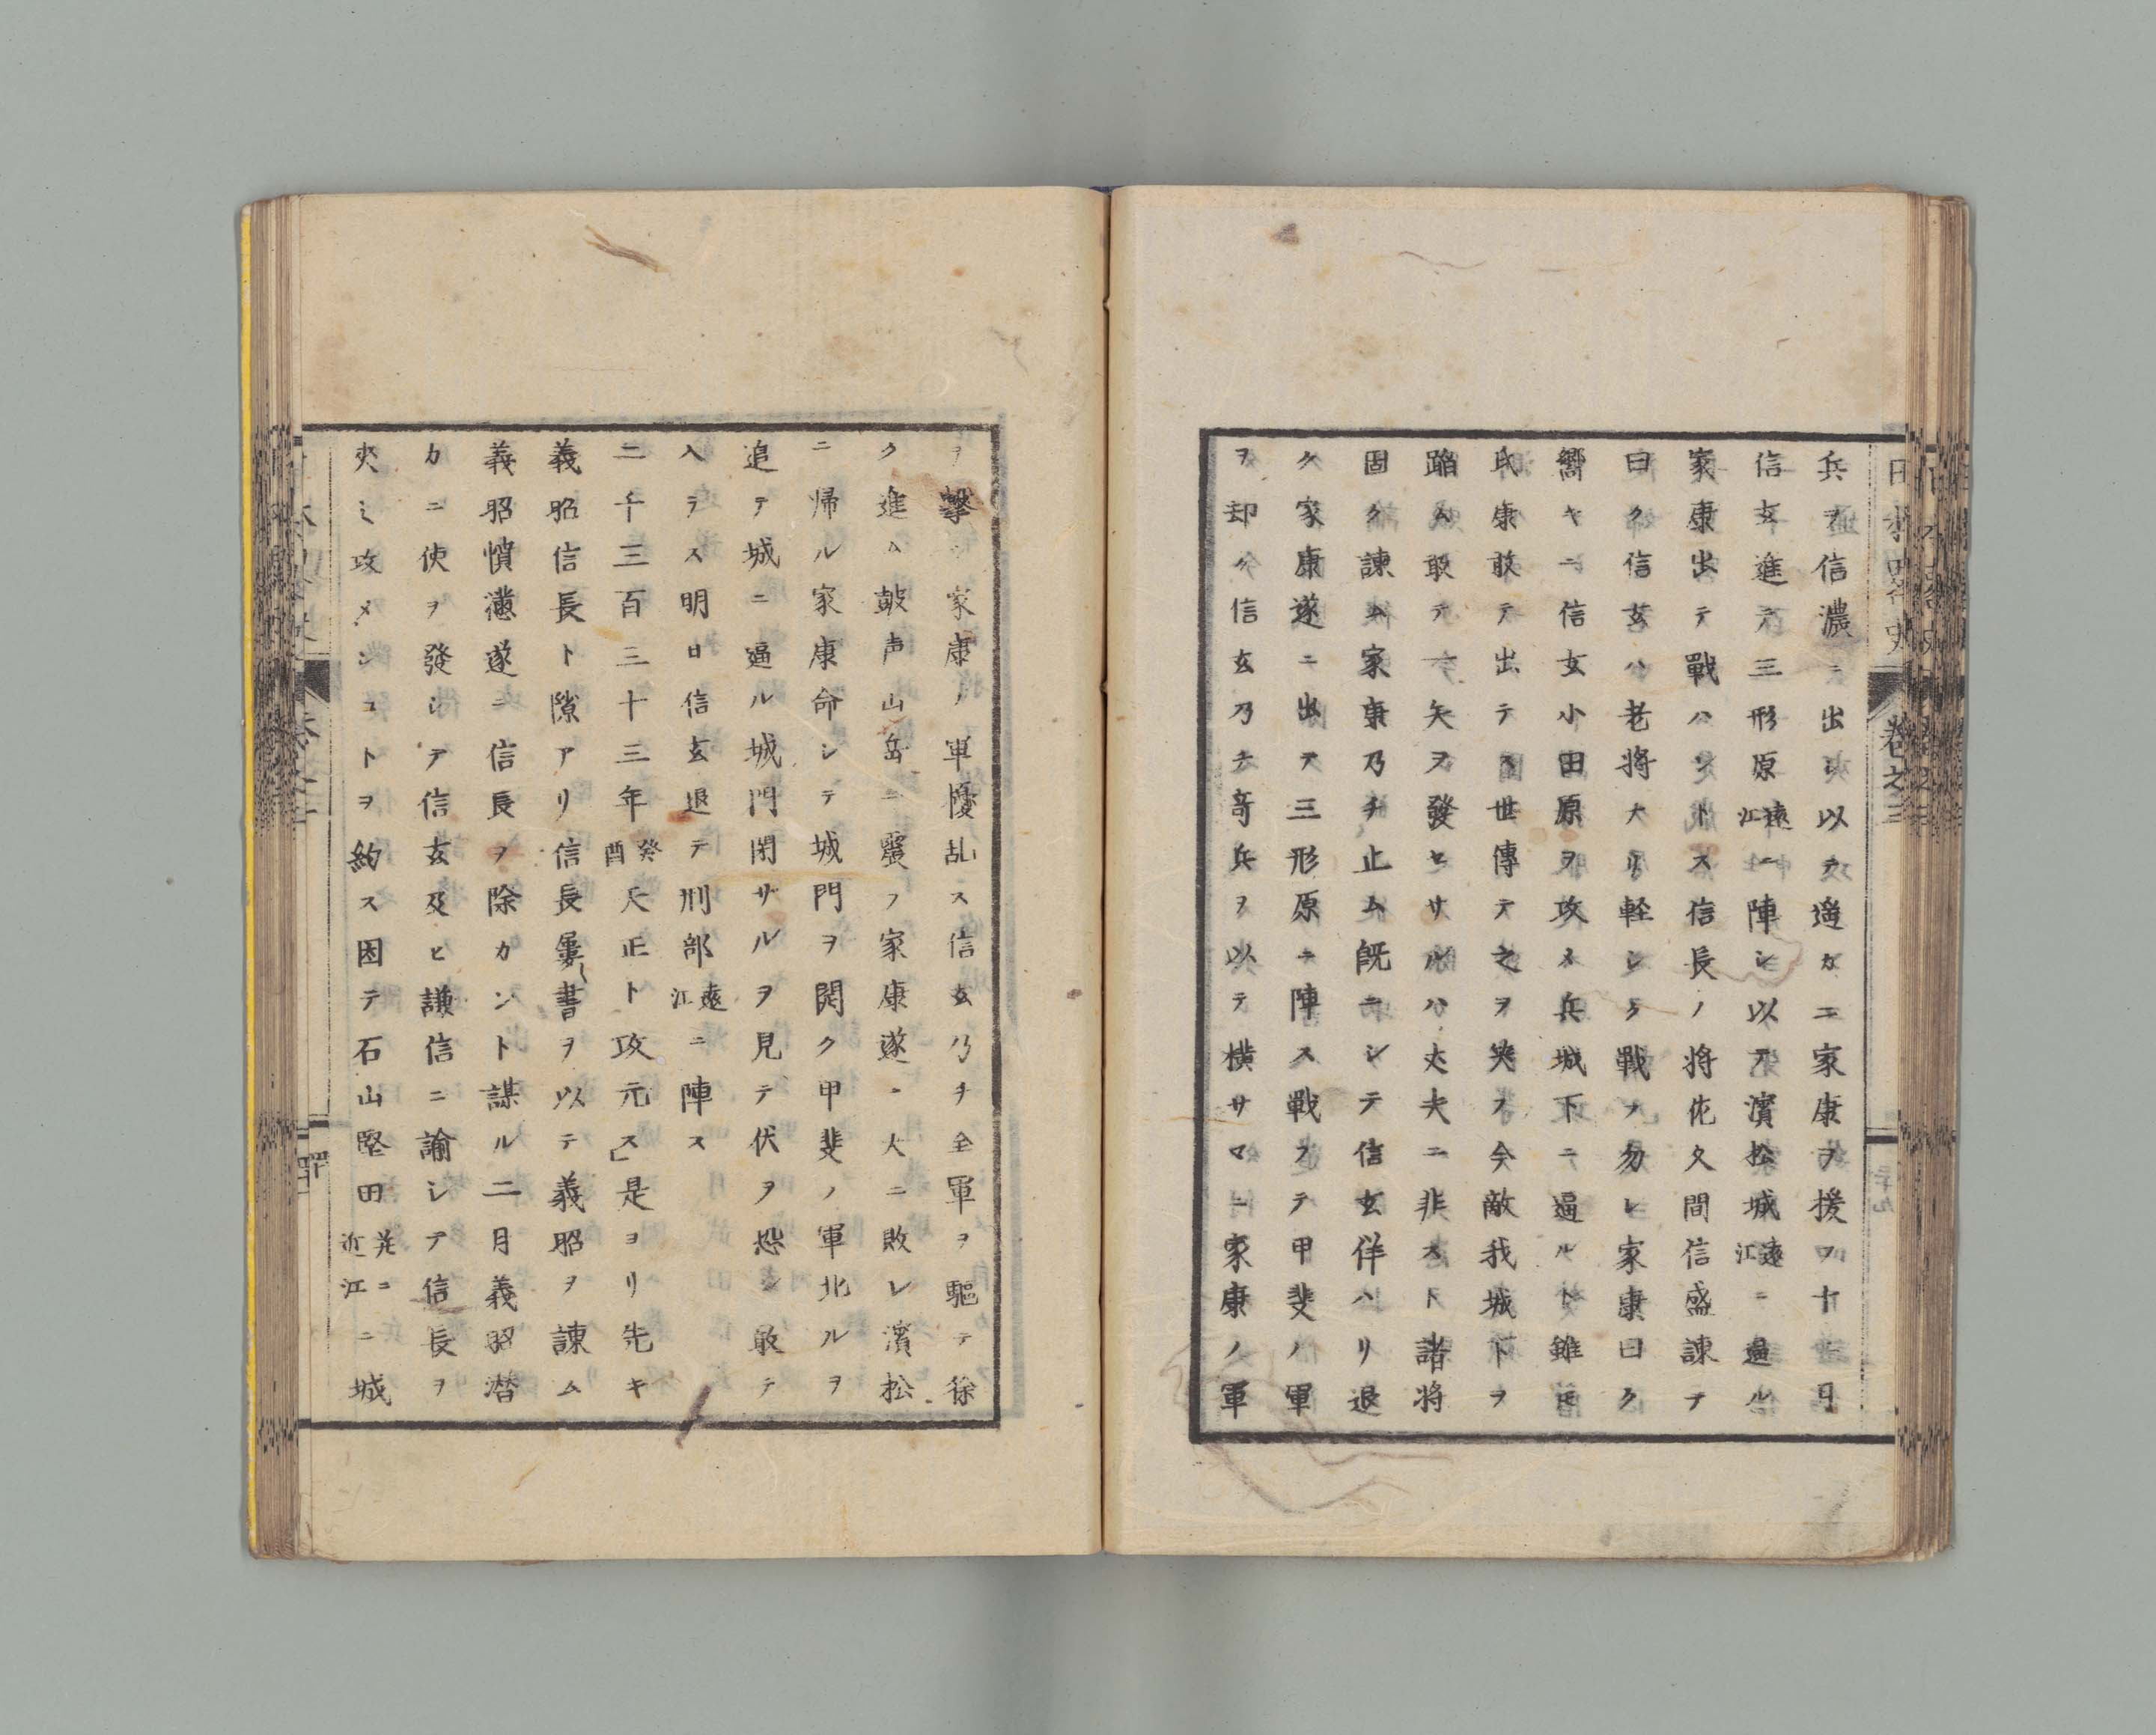 兵ヲ信濃ニ出シ以テ遙カニ家康ヲ援ク十二月
信玄進テ三形原遠江ニ陣シ以テ濱松城遠江ニ逼ル
家康出テ戰ハントス信長ノ将佐久間信盛諫テ
曰ク信玄ハ老将ナリ軽シク戰フ勿レ家康曰ク
嚮キニ信玄小田原ヲ攻メ兵城下ニ逼ルト雖ドモ
氏康敢テ出テス世傳テ之ヲ笑フ今敵我城下ヲ
踰ム敢テ一矢ヲ發セサルハ丈夫ニ非スト諸将
固ク諫ム家康乃チ止ム既ニシテ信玄佯ハリ退
ク家康遂ニ出テ三形原ニ陣ス戰フテ甲斐ノ軍
ヲ却ク信玄乃チ奇兵ヲ以テ横サマニ家康ノ軍
ヲ撃ツ家康ノ軍擾乱ス信玄乃チ全軍ヲ驅テ徐
ク進ム皷声山岳ニ震フ家康遂ニ大ニ敗レ濱松
ニ帰ル家康命シテ城門ヲ開ク甲斐ノ軍北ルヲ
追テ城ニ逼ル城門閉サルヲ見テ伏ヲ恐レ敢テ
入テス明日信玄退テ刑部遠江ニ陣ス
二千三百三十三年癸酉天正ト攻元ス是ヨリ先キ
義昭信長ト隙アリ信長屡書ヲ以テ義昭ヲ諫ム
義昭憤懣遂ニ信長ヲ除カント謀ル二月義昭潜
カニ使ヲ發シテ信玄及ヒ謙信ニ諭シテ信長ヲ
夾ミ攻メンコトヲ約ス因テ石山堅田並ニ近江ニ城
日本略史 卷之三